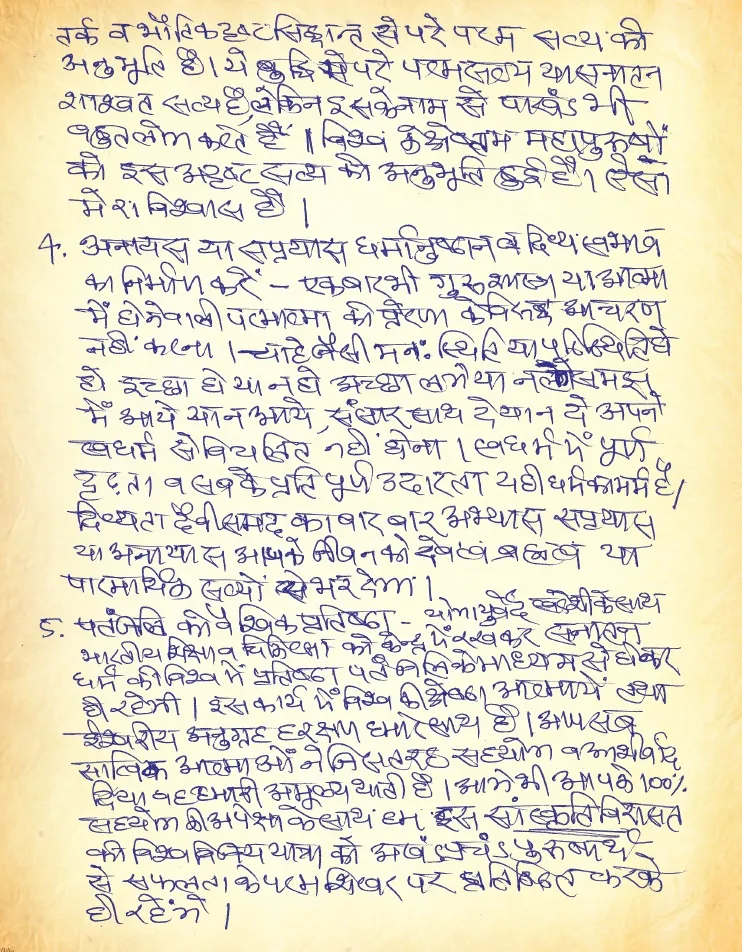 तर्क व भौतिक दृष्ट सिद्धान्त से परे परम सत्य की
अनुभूति है। ये बुद्धि से परे परमसत्य या सनातन
शाश्वत सत्य है, लेकिन इसके नाम से पाखंड भी
बहुत लोग करते हैं । विश्व के श्रेष्ठतम महापुरुषों
को इस अदृष्ट सत्य की अनुभूति हुई है। ऐसा
मेरा विश्वास है ।
4. अनायास या सप्रयास धर्मानुष्ठान व दिव्य स्वभाव
का निर्माण करें - एकबार भी गुरु शास्त्र या आत्मा
में होने वाली परमात्मा की प्रेरणा के विरुद्ध आचरण
नहीं करना । चाहे जैसी मनः स्थिति या परिस्थिति हो
हो इच्छा हो या न हो अच्छा लगे या न लगे समझ
में आये या न आये, संसार साथ दे या न दे अपने
स्वधर्म से विचलित नहीं होना । स्वधर्म में पूर्ण
दृढ़ता व सबके प्रति पूर्ण उदारता यही धर्म का मर्म है।
दिव्यता दैवी सम्पद् का बार बार अभ्यास सप्रयास
या अनायास आपके जीवन को देवत्व ब्रह्मत्व या
पारमार्थिक सत्यों से भर देगा ।
5. पतंजलि की वैश्विक प्रतिष्ठा - योग आयुर्वेद स्वदेशी के साथ
भारतीय शिक्षा व चिकित्सा को केन्द्र में रखकर सनातन
धर्म की विश्व में प्रतिष्ठा पतंजलि के माध्यम से होकर
ही रहेगी । इस कार्य में विश्व की श्रेष्ठ आत्मायें तथा
ईश्वरीय अनुग्रह हर क्षण हमारे साथ है । आप सब
सात्विक आत्माओं ने जिस तरह सहयोग व आशीर्वाद
दिया वह हमारी अमूल्य थाती है । आगे भी आपके 100%
सहयोग की अपेक्षा के साथ हम इस सांस्कृतिक विरासत
की विश्व विजय यात्रा को अखंड प्रचंड पुरुषार्थ
से सफलता के परम शिखर पर प्रतिष्ठित करके
ही रहेंगे ।